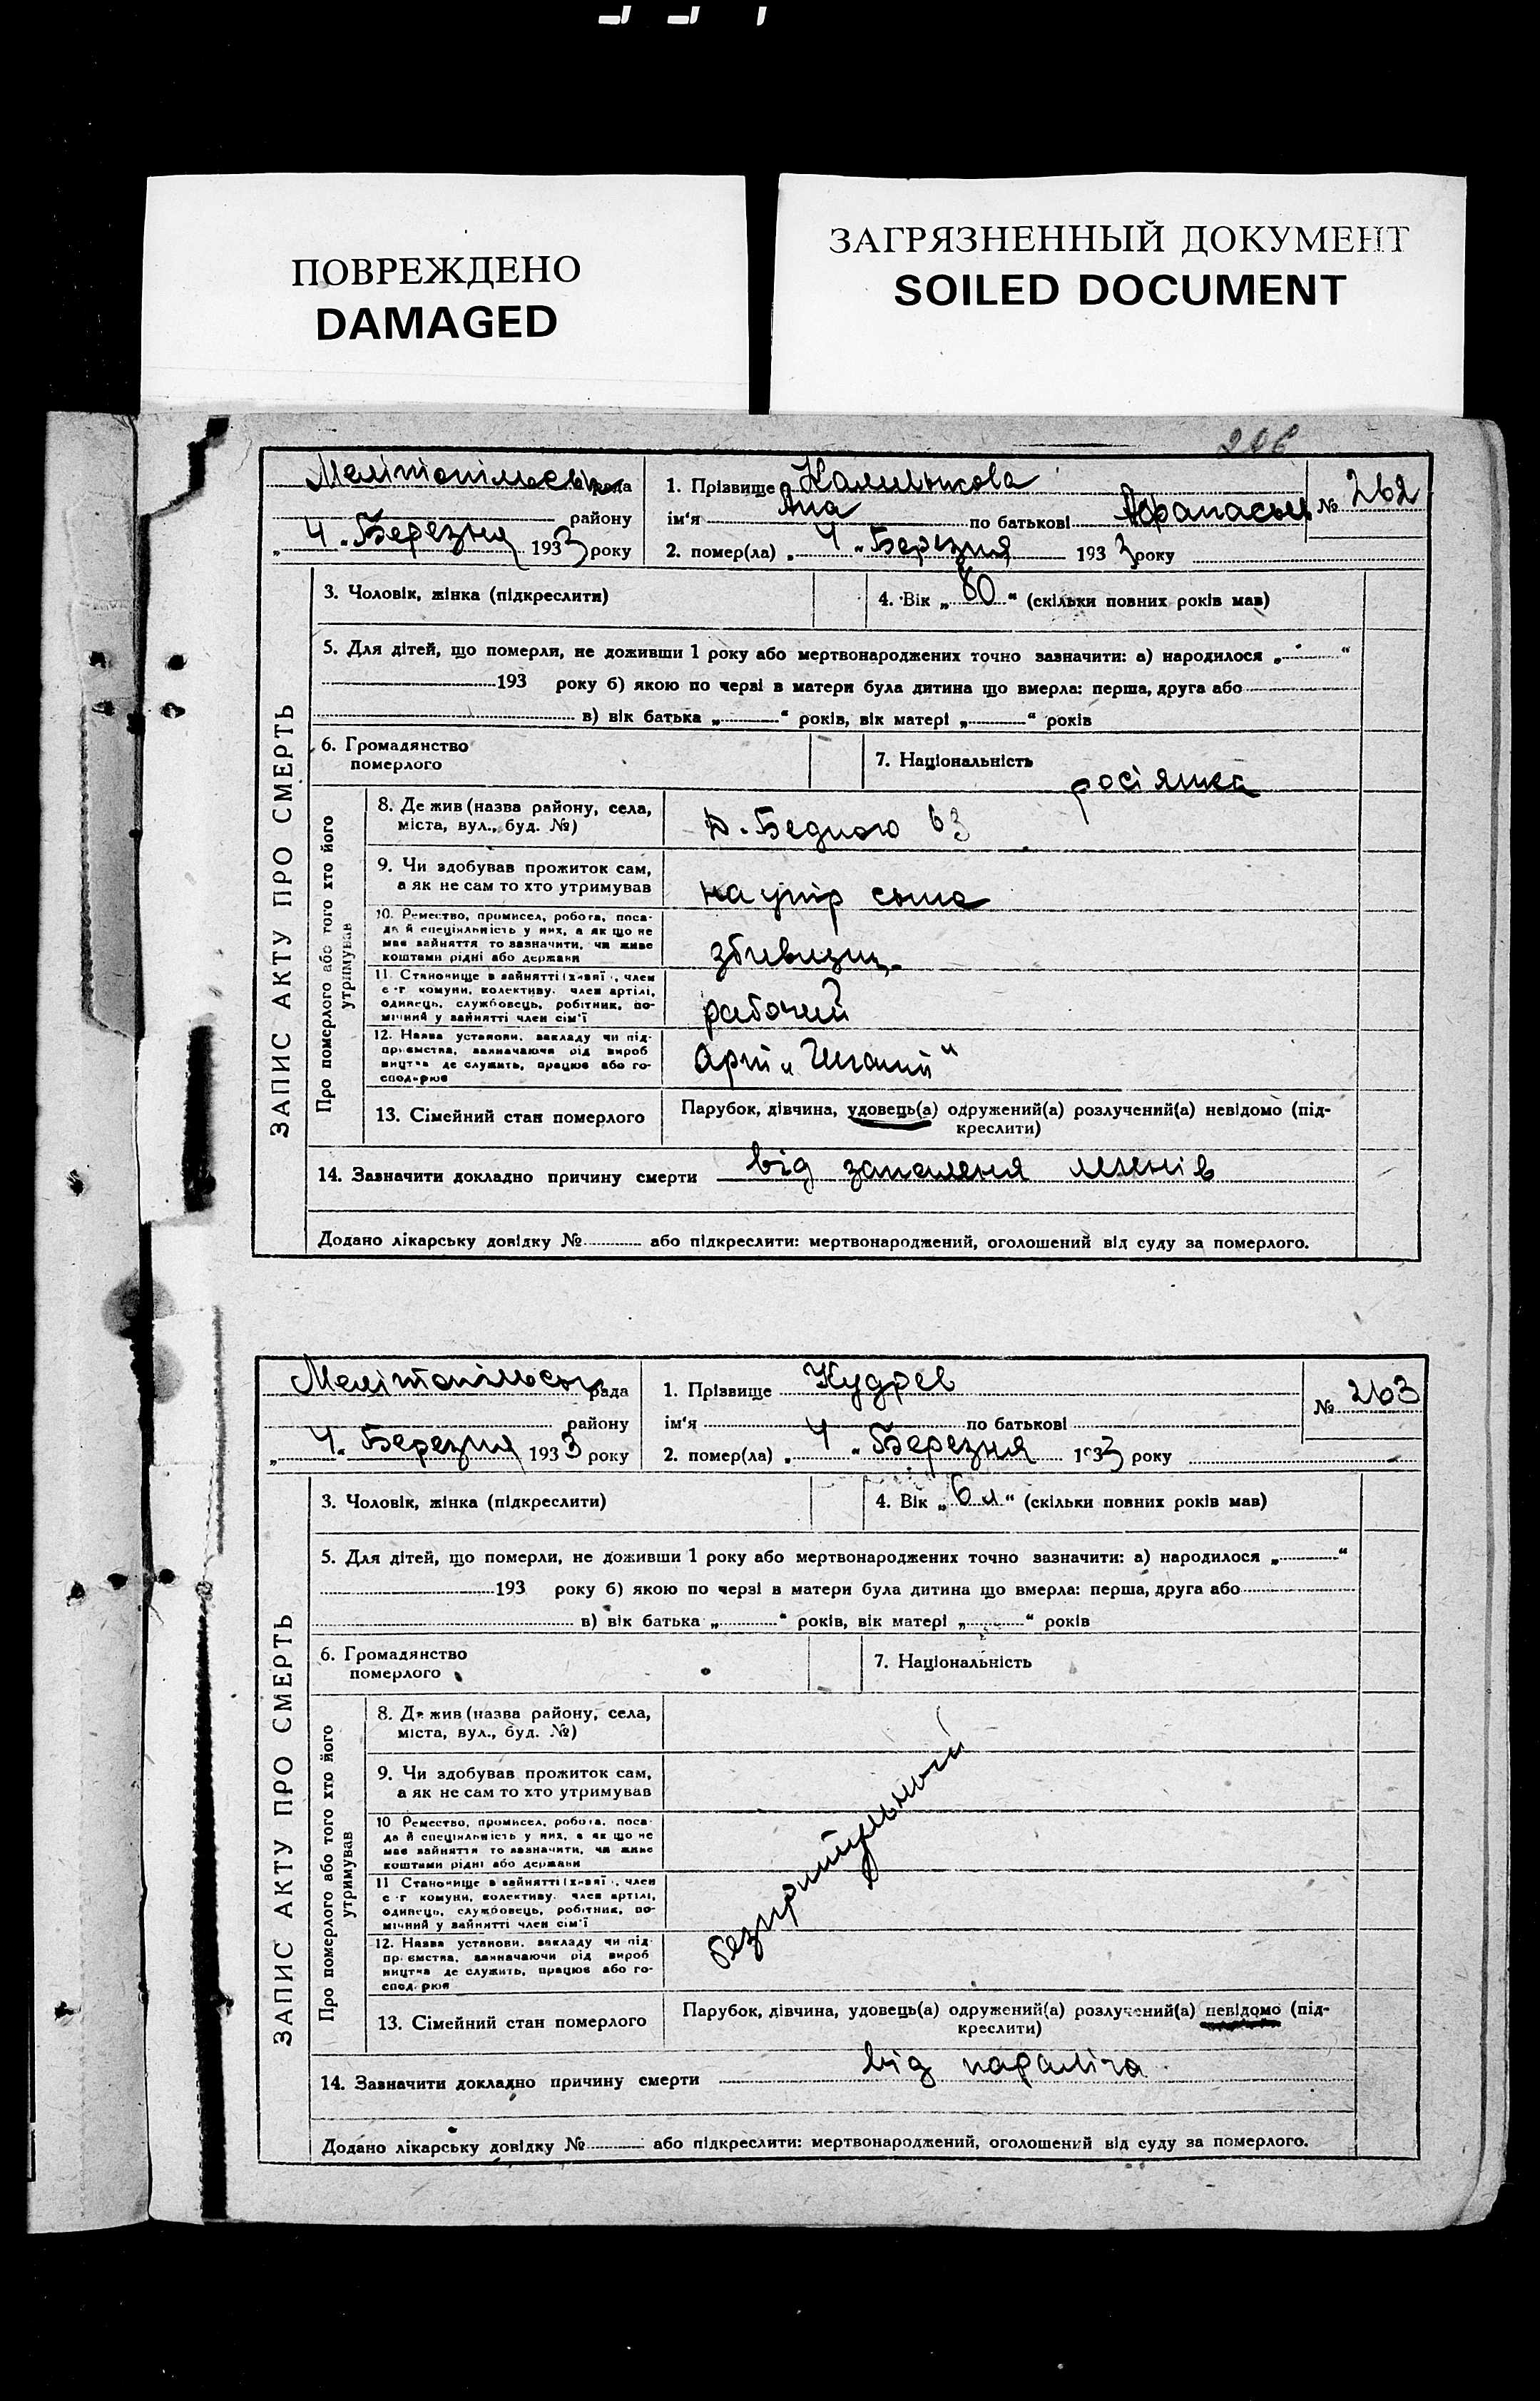 ПОВРЕЖДЕНО
DAMAGED
ЗАГРЯЗНЕННЫЙ ДОКУМЕНТ
SOILED DOCUMENT
206
Мелітопільськ рада
району
„ 4 „ Березня 1933 року
1. Прізвище
ім'я Ана по батькові Афанасьи
№ 262
2. помер(ла) „ 4 „ Березня 1933 року
ЗАПИС АКТУ ПРО СМЕРТЬ
3. Чоловік, жінка (підкреслити)
4. Вік „ 80 “ (скільки повних років мав)
5. Для дітей, що померли, не доживши 1 року або мертвонароджених точно зазначити: а) народилося „ “
193 року б) якою по черзі в матери була дитина що вмерла: перша, друга або
в) вік батька „ “ років, вік матері „ “ років
6. Громадянство
померлого
7. Національність росіянка
Про померлого або того хто його
утримував
8. Де жив (назва району, села,
міста, вул., буд. №)
Д. Бедного 63
9. Чи здобував прожиток сам,
а як не сам то хто утримував
на утр сына
10. Ремество, промисел, робота, поса-
да й спеціяльність у них, а як що не
має зайняття то зазначити, чи живе
коштами рідні або держави
11. Становище в зайнятті (хазяї), член
с-г комуни, колективу, член артілі,
одинець, службовець, робітник, по-
мічний у зайнятті член сім'ї
рабочий
12. Назва установи, закладу чи під-
приємства, зазначаючи рід вироб
ництва де служить, працює або го-
сподарює
Арт „
13. Сімейний стан померлого
Парубок, дівчина, удовець(а) одружений(а) розлучений(а) невідомо (під-
креслити)
14. Зазначити докладно причину смерти від запаленя легенів
Додано лікарську довідку № або підкреслити: мертвонароджений, оголошений від суду за померлого.
Мелітопільськ рада
району
„ 4. Березня 1933 року
1. Прізвище Кудрев
ім'я по батькові
№ 263
2. помер(ла) „ 4 „ Березня 1933 року
ЗАПИС АКТУ ПРО СМЕРТЬ
3. Чоловік, жінка (підкреслити)
4. Вік „ 6 л “ (скільки повних років мав)
5. Для дітей, що померли, не доживши 1 року або мертвонароджених точно зазначити: а) народилося „ “
193 року б) якою по черзі в матери була дитина що вмерла: перша, друга або
в) вік батька „ “ років, вік матері „ “ років
6. Громадянство
померлого
7. Національність
Про померлого або того хто його
утримував
8. Де жив (назва району, села,
міста, вул., буд. №)
9. Чи здобував прожиток сам,
а як не сам то хто утримував
10 Ремество, промисел, робота, поса-
да й спеціяльність у них, а як що не
має зайняття то зазначити, чи живе
коштами рідні або держави
11 Становище в зайнятті (хазяї), член
с-г комуни, колективу, член артілі,
одинець, службовець, робітник, по-
мічний у зайнятті член сім'ї
12. Назва установи, закладу чи під-
приємства, зазначаючи рід вироб
ництва де служить, працює або го-
сподарює
безпритульный
13. Сімейний стан померлого
Парубок, дівчина, удовець(а) одружений(а) розлучений(а) невідомо (під-
креслити)
14. Зазначити докладно причину смерти від параліча
Додано лікарську довідку № або підкреслити: мертвонароджений, оголошений від суду за померлого.